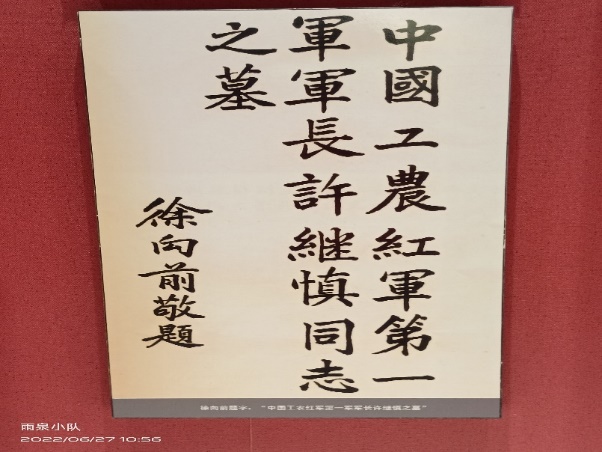 中國工農紅軍第一
軍軍長許継慎同志
之墓
徐向前敬題
徐向前题字："中国工农红军第一军军长许继慎之墓"
雨泉小队
2022/06/27 10:56